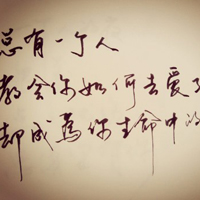 总有一个人
教会你如何去爱了
却成为你生命中的